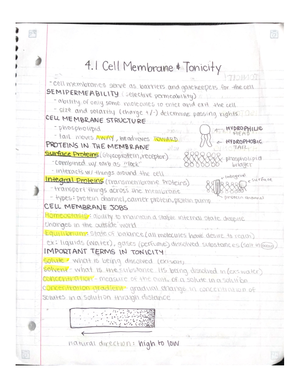 4.1 Cell Membrane & Tonicity
- cell membranes serve as barriers and gatekeepers for the cell
SEMIPERMEABILITY: (selective permeability)
- Ability of only some molecules to enter and exit the cell
- size and polarity (charge +/-) determine passing rights
CELL MEMBRANE STRUCTURE
- phospholipid
- tail moves AWAY, head moves TOWARDS
HYDROPHILIC HEAD
HYDROPHOBIC TAIL
PROTEINS IN THE MEMBRANE
Surface Proteins:
- combined with as "lock"
- interacts w/ things around the cell
phospholipid bilayer
Integral Proteins (transmembrane proteins)
- transport things across the membrane
- types: protein channel, carrier protein, protein pump
integral
surface
protein channel
CELL MEMBRANE JOBS
Homeostasis: ability to maintain a stable internal state despite
changes in the outside world
Equilibrium: state of balance (all molecules have desire to reach)
ex: liquids (water), gases, dissolved substances
IMPORTANT TERMS IN TONICITY:
solute - what is being dissolved
solvent - what is the substance its being dissolved in (ex: water)
concentration - measure of the amt. of a solute in a solution
concentration gradient - gradual change in concentration of
solutes in a solution through distance
natural direction: high to low